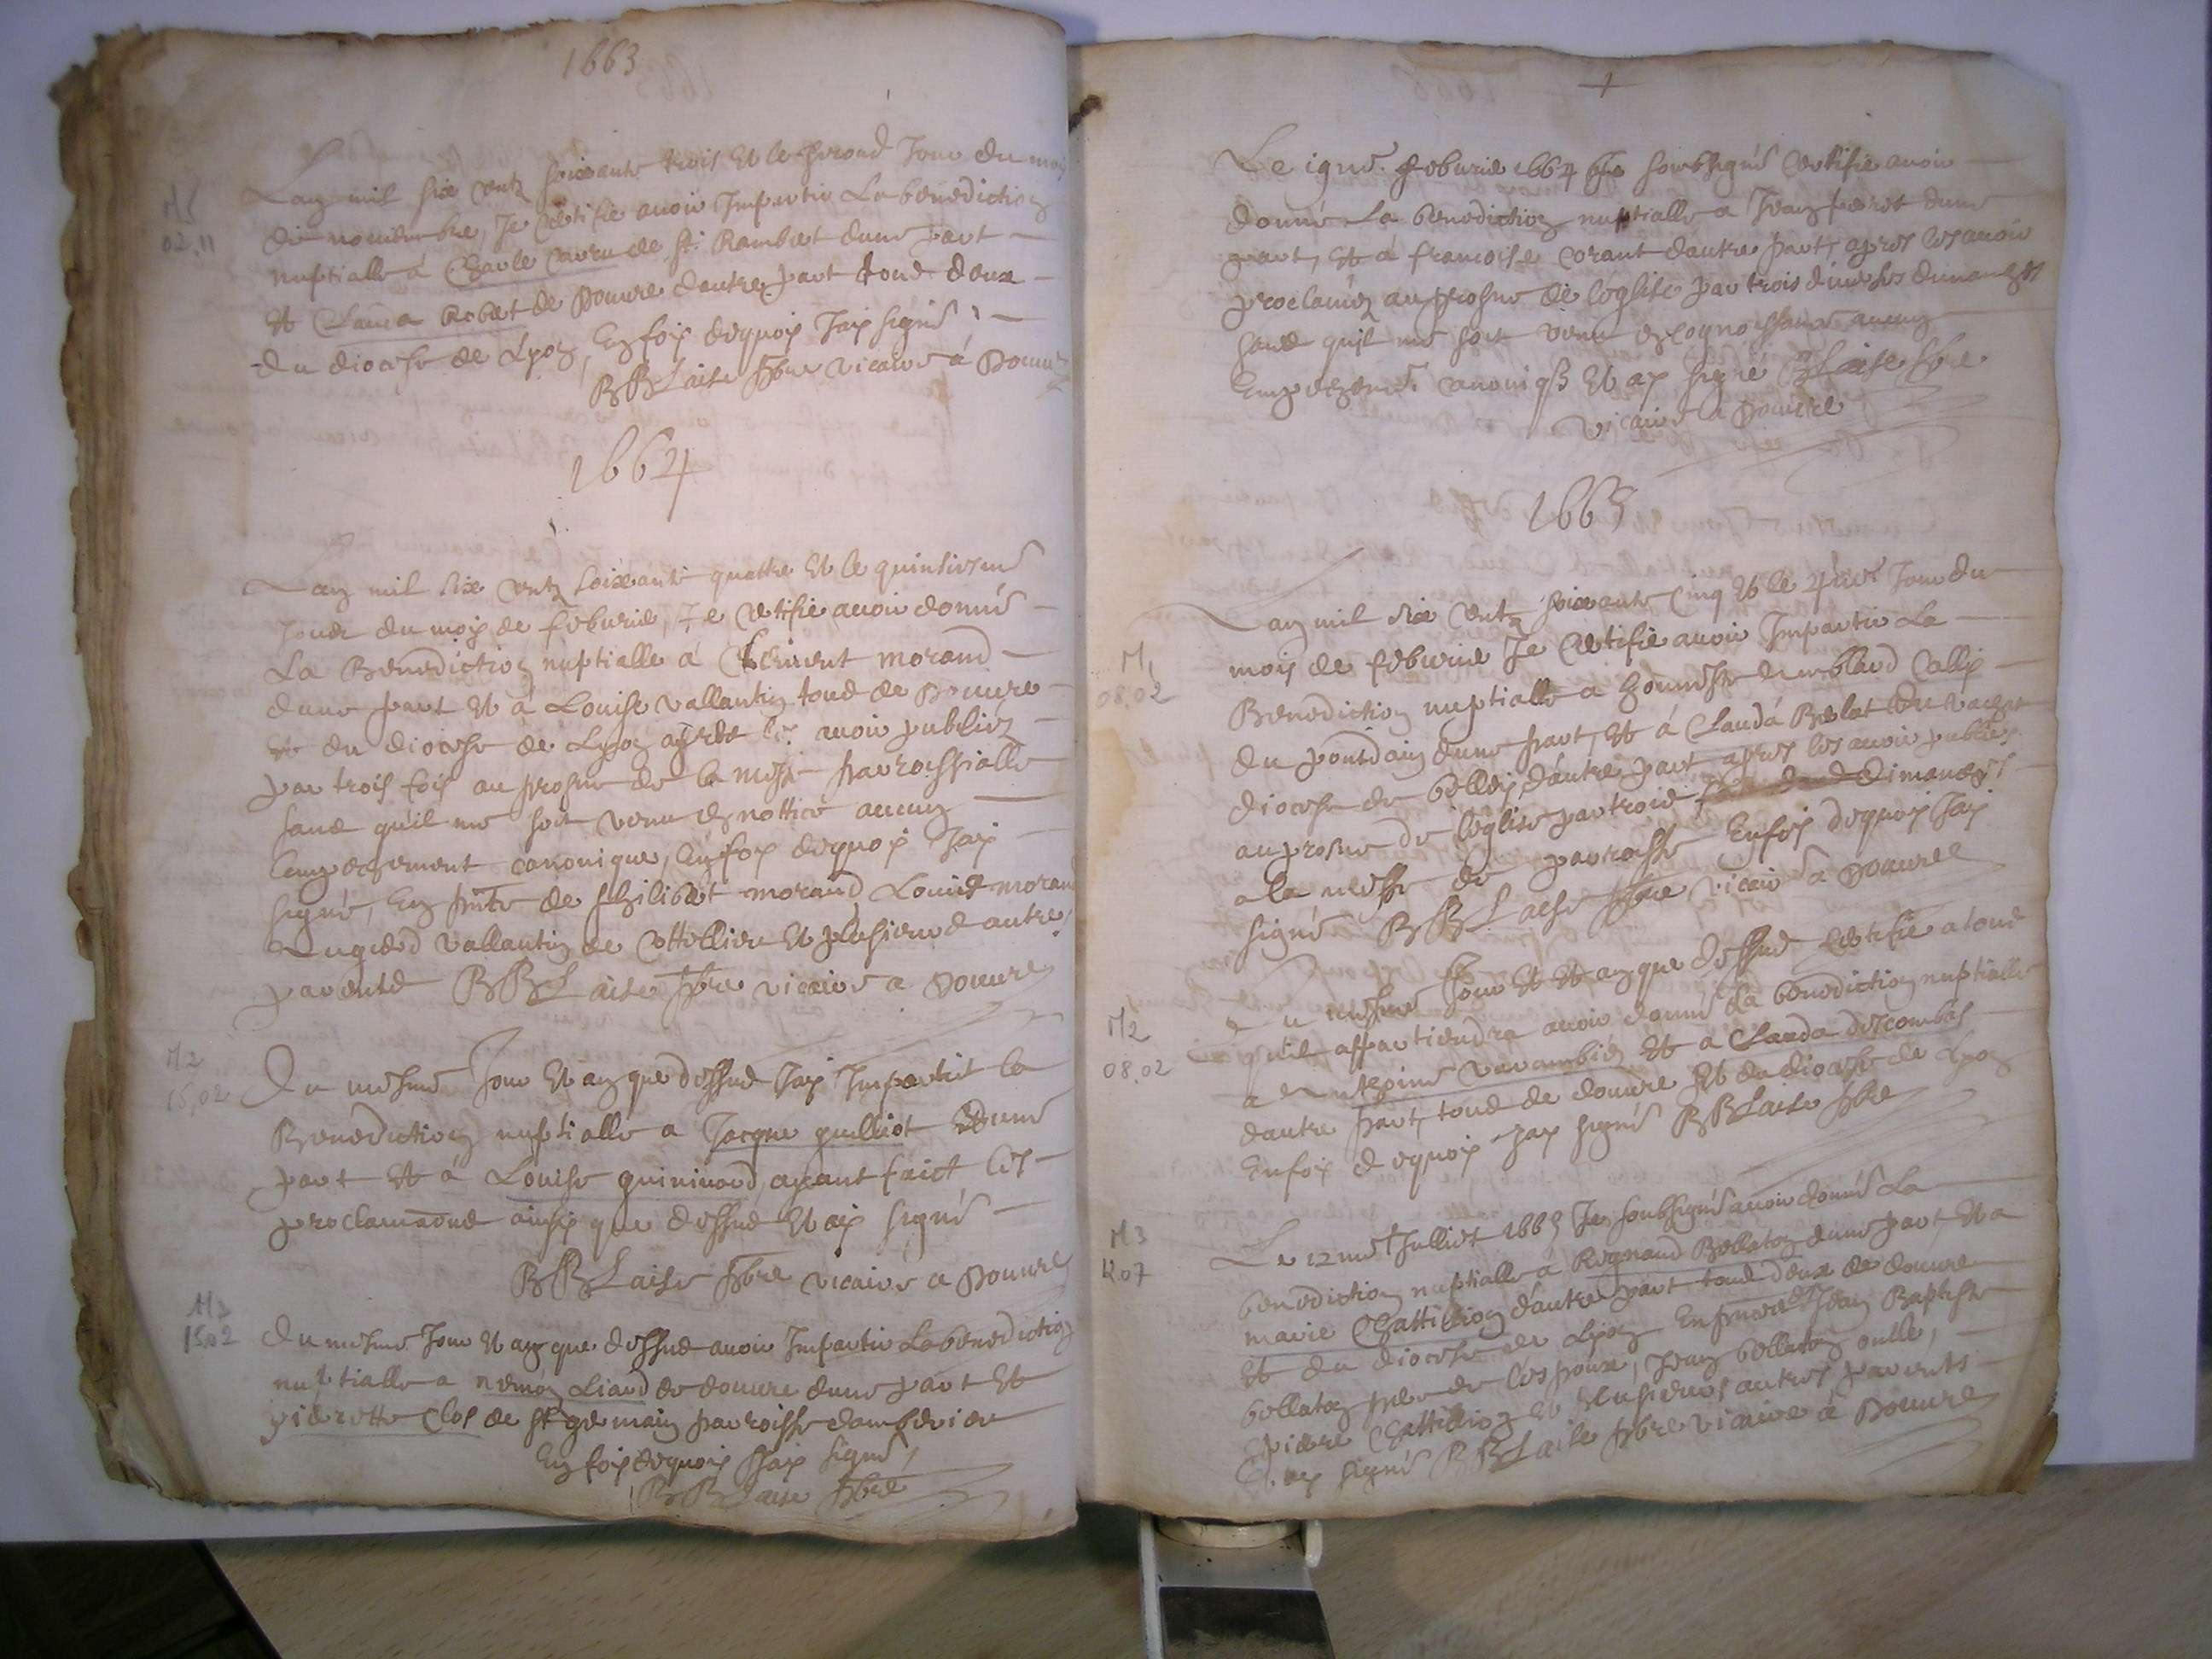 1663
M5
02.11
Lan mil six centz soixante trois et le second Jour du mois
de nouembre, Je Certifie auoir Impartir La benediction
nuptialle á Charle de St. Rambert dune part
et Clauda Robert de Douure dautre part tous deux
du diocese de Lyon, En foy dequoy Jay signé
BBLaise pbre vicaire á Douure
1664
Lan mil six centz soixante quattre et le quinsiesme
Jour du moys de feburier, Je Certifie auoir donné
La Benediction nuptialle á Clement morand
dune part et á Louise vallantin tous de Douure
du diocese de Lyon apres les auoir publiéz
par trois fois au prosne de la messe parroissialle
sans qu'il me soit venu en nottice aucun
Empeschement canonique, En foy dequoy Jay
signé, En pnce de philibert morand Louis morand
vallantin de et plusieurs autres
parents BBLaise pbre vicaire a Douure
M2
15.02
Du mesme Jour et an que dessus Jay Impartit la
Benediction nuptialle a Jacque guilliot dune
part et á Louise guininard, ayant faict les
proclamaons ainsy que dessus et ay signé
BBLaise pbre vicaire a Douure
M3
15.02
Du mesme Jour et an que dessus auoir Impartir La benediction
nuptialle a Liard de douure dune part et
pierrette Clos de st germain parroisse damberieu
En foy dequoy Jay signé,
BBLaise pbre
+
Le feburier 1664 Je soubsigné Certifie auoir
donné La benediction nuptialle a Jean perret dune
part, et á francoise corant dautre part, apres les auoir
proclaméz au prosne de léglise par trois diuerses dimanches
sans quil me soit venu en cognoissance aucun
Empeschemt. et ay signé BLaise pbre
vicaire a Douure
1665
M1
08.02
Lan mil six centz soixante Cinq et le Jour du
mois de feburier Je Certifie auoir Impartir La
Benediction nuptialle a honneste Callip
du pontdain dune part, et á Clauda Belat
diocese de belley, dautre part apres les auoir publiéz
au prosne de léglise par trois dimanches
a la messe de parroisse En foy dequoy Jay
signé BBLaise pbre vicaire á Douure
M2
08.02
Du mesme Jour et an que dessus Certifie a tous
quil appartiendra auoir donné La benediction nuptialle
a Anthoine varambier et a Clauda descombes
dautre part, tous de douure et du diocese de Lyon
En foy dequoy Jay signé BBLaise pbre
M3
12.07
Le 12me Julliet 1665 Je soubsigné auoir donné La
benediction nuptialle a Reynaud Bellaton dune part, et a
marie Chattillion dautre part tous deux de douure
et du diocese de Lyon En pnce de Jean Baptiste
bellaton pere de lespoux, Jean bellaton oncle,
pierre Chattillion et plusieurs autres parents
Et ay signé BBLaise pbre vicaire á Douure